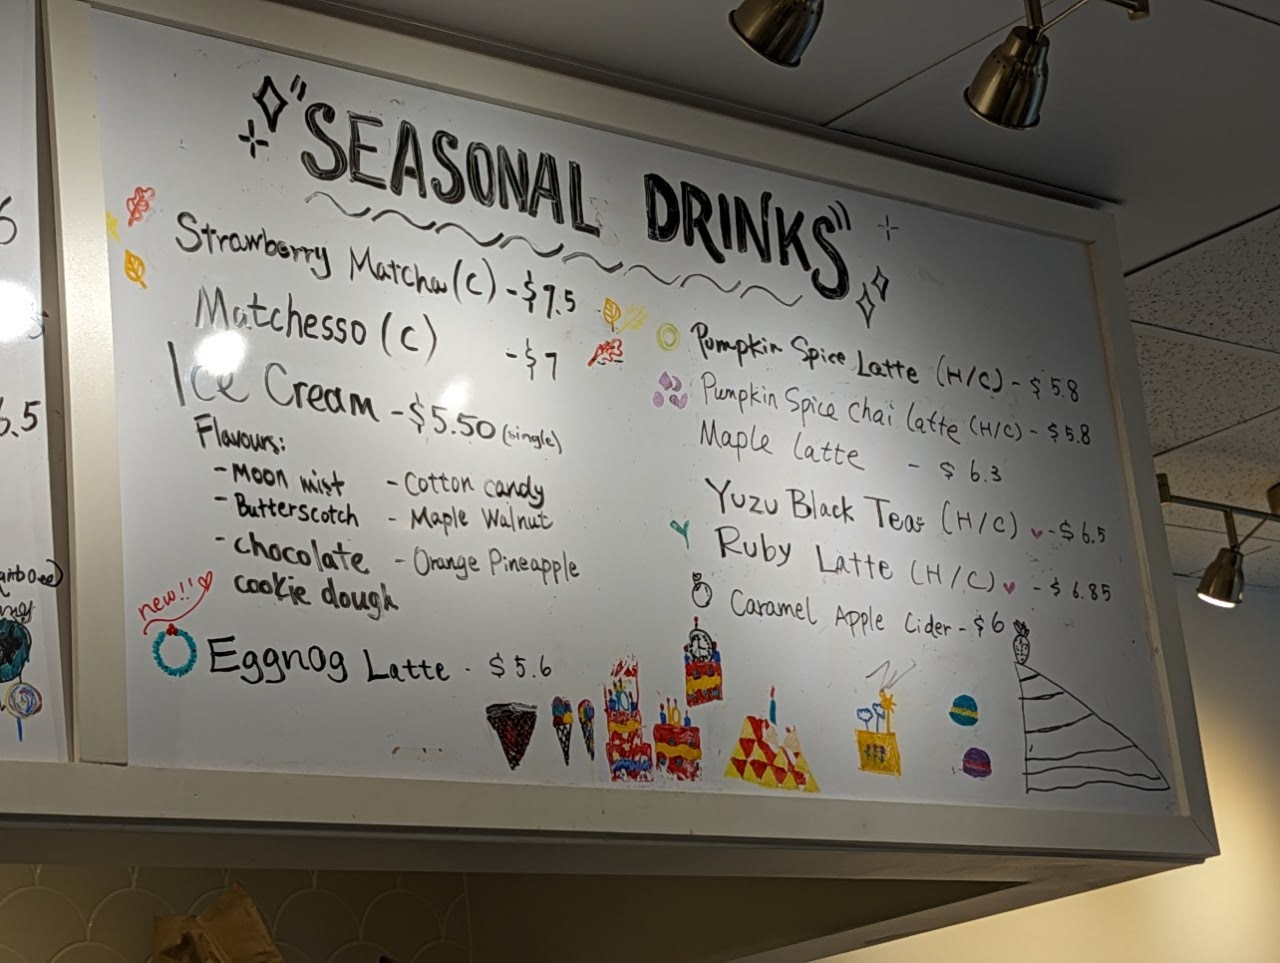 "SEASONAL DRINKS"
Strawberry Matcha (C) - $7.5
Matchesso (C) - $7
Ice Cream - $5.50 (single)
Flavours:
- Moon mist - Cotton candy
- Butterscotch - Maple Walnut
- chocolate - Orange Pineapple
cookie dough
new!!
Eggnog Latte - $5.6
Pumpkin Spice Latte (H/C) - $5.8
Pumpkin Spice Chai latte (H/C) - $5.8
Maple latte - $6.3
Yuzu Black Tea (H/C) - $6.5
Ruby Latte (H/C) - $6.85
Caramel Apple Cider - $6
6.5